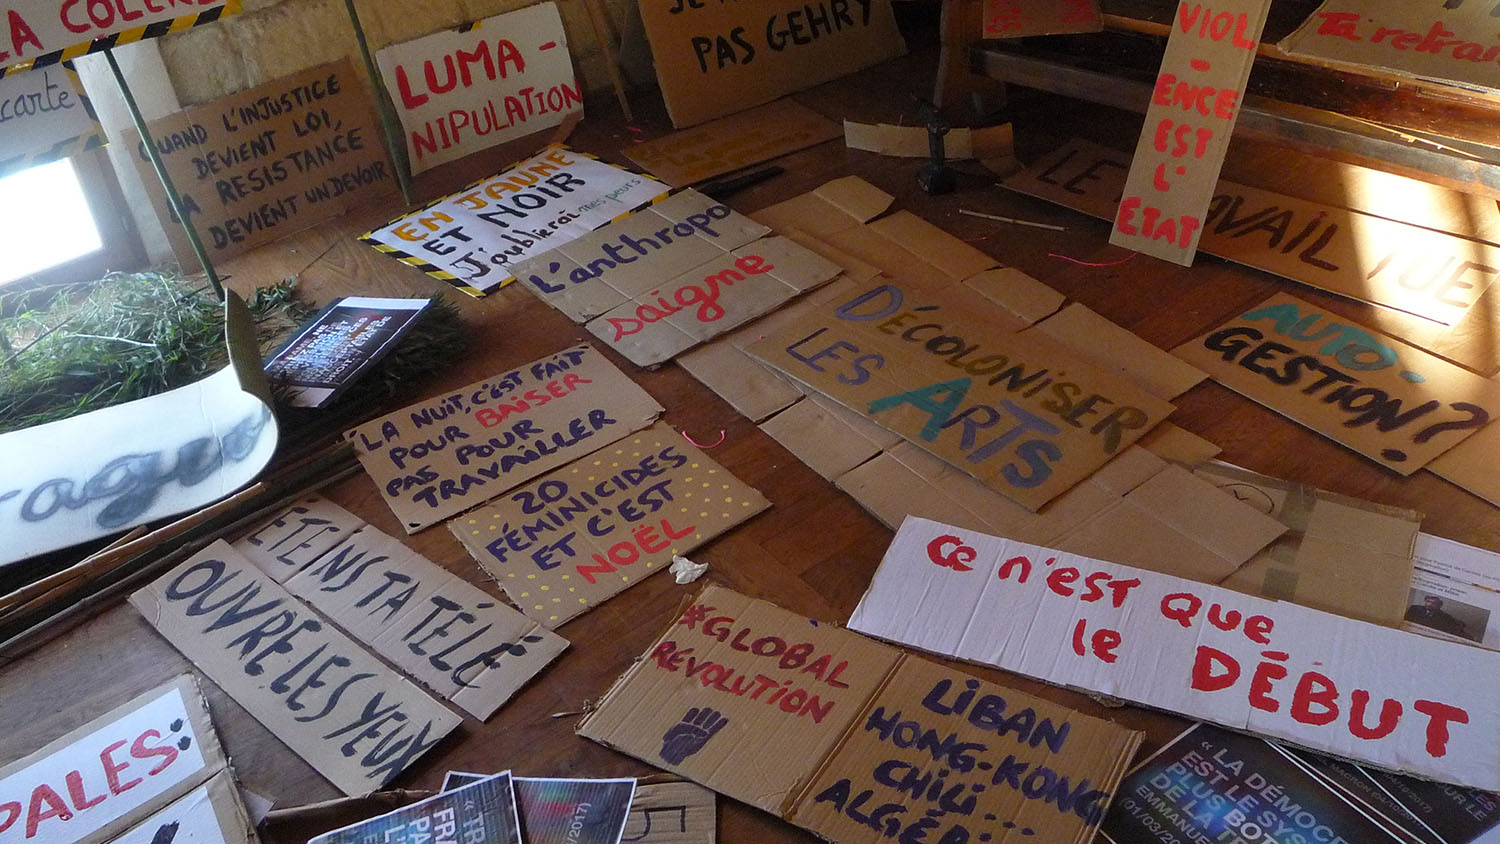 LA COLÈRE
carte
QUAND L'INJUSTICE
DEVIENT LOI,
LA RESISTANCE
DEVIENT UN DEVOIR
LUMA -
NIPULATION
PAS GEHRY
VIOL
-
ENCE
EST
L'
ETAT
EN JAUNE
ET NOIR
J'oublierai mes peurs
L'anthropo
saigne
LE TRAVAIL TUE
AUTO-
GESTION?
DÉCOLONISER
LES ARTS
LA NUIT, C'EST FAIT
POUR BAISER
PAS POUR
TRAVAILLER
20
FÉMINICIDES
ET C'EST
NOËL
ÉTEINS TA TÉLÉ
OUVRE LES YEUX
Ce n'est que
le DÉBUT
*GLOBAL
RÉVOLUTION
LIBAN
HONG-KONG
CHILI...
ALGÉR
PALES:
« LA DÉMOC
EST LE SYS
PLUS BO
DE LA T
EMMANUE
(01/03/